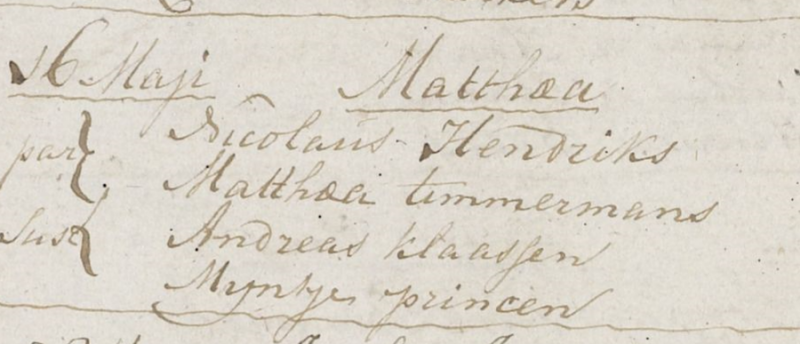 16 Maji Matthæa
par Nicolaus Hendriks
Matthæa timmermans
Sus Andreas klaassen
Myntje princen